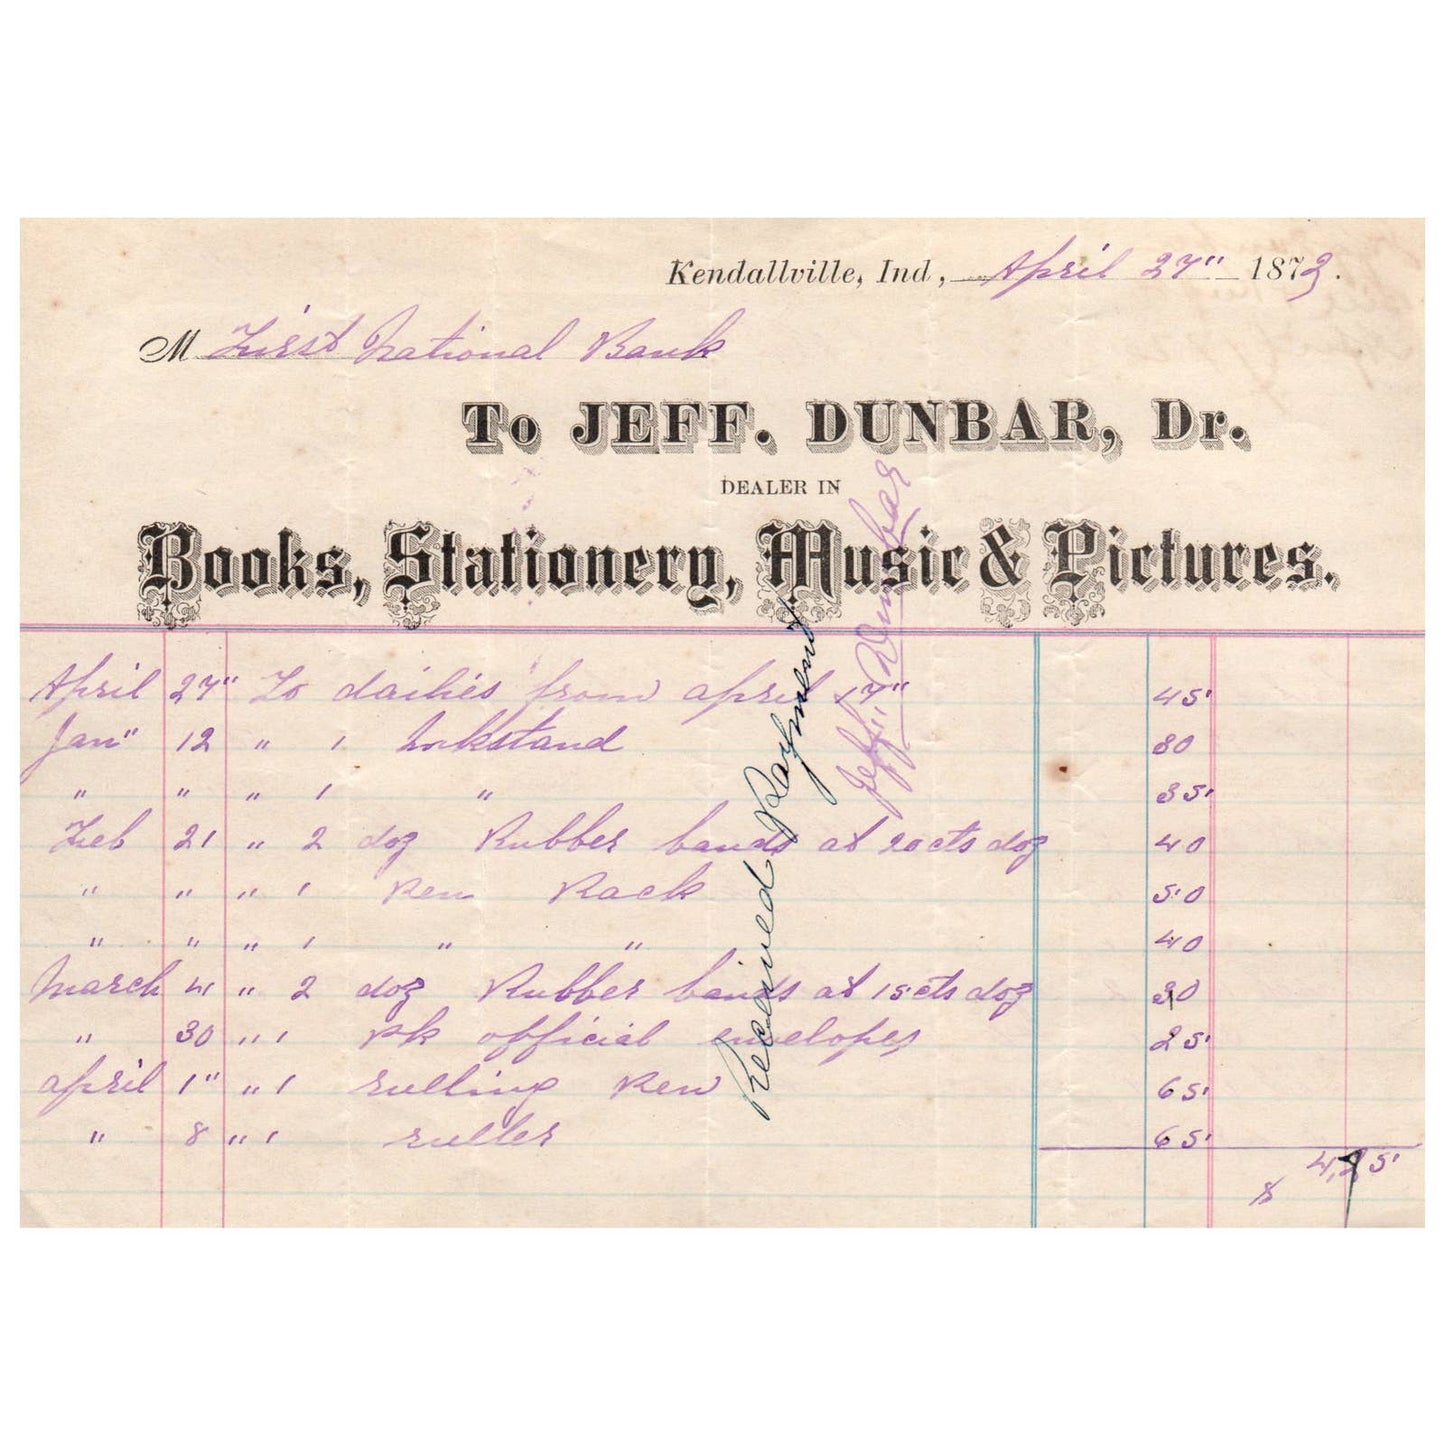 Kendallville, Ind, April 27" 1873.
M First National Bank
To JEFF. DUNBAR, Dr.
DEALER IN
Books, Stationery, Music & Pictures.
April 27" To dailies from april 17" 45
Jan" 12 " 1 Inkstand 80
" " " 1 " 35
Feb 21 " 2 doz Rubber bands at 20 cts doz 40
" " " 1 Pen Rack 50
" " " 1 " " 40
March 4 " 2 doz Rubber bands at 15 cts doz 30
" 30 " 1 Pk official envelopes 25
april 1" " 1 rulling Pen 65
" 8 " 1 ruller 65
$ 4,75
Received Payment
Jeff. Dunbar